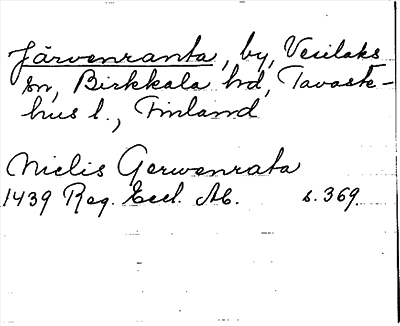 Järvenranta, by, Vesilaks
sn, Birkkala hd, Tavaste-
hus l., Finland
Nielis Gerwenrata
1439 Reg. Eccl. Ab. s. 369.